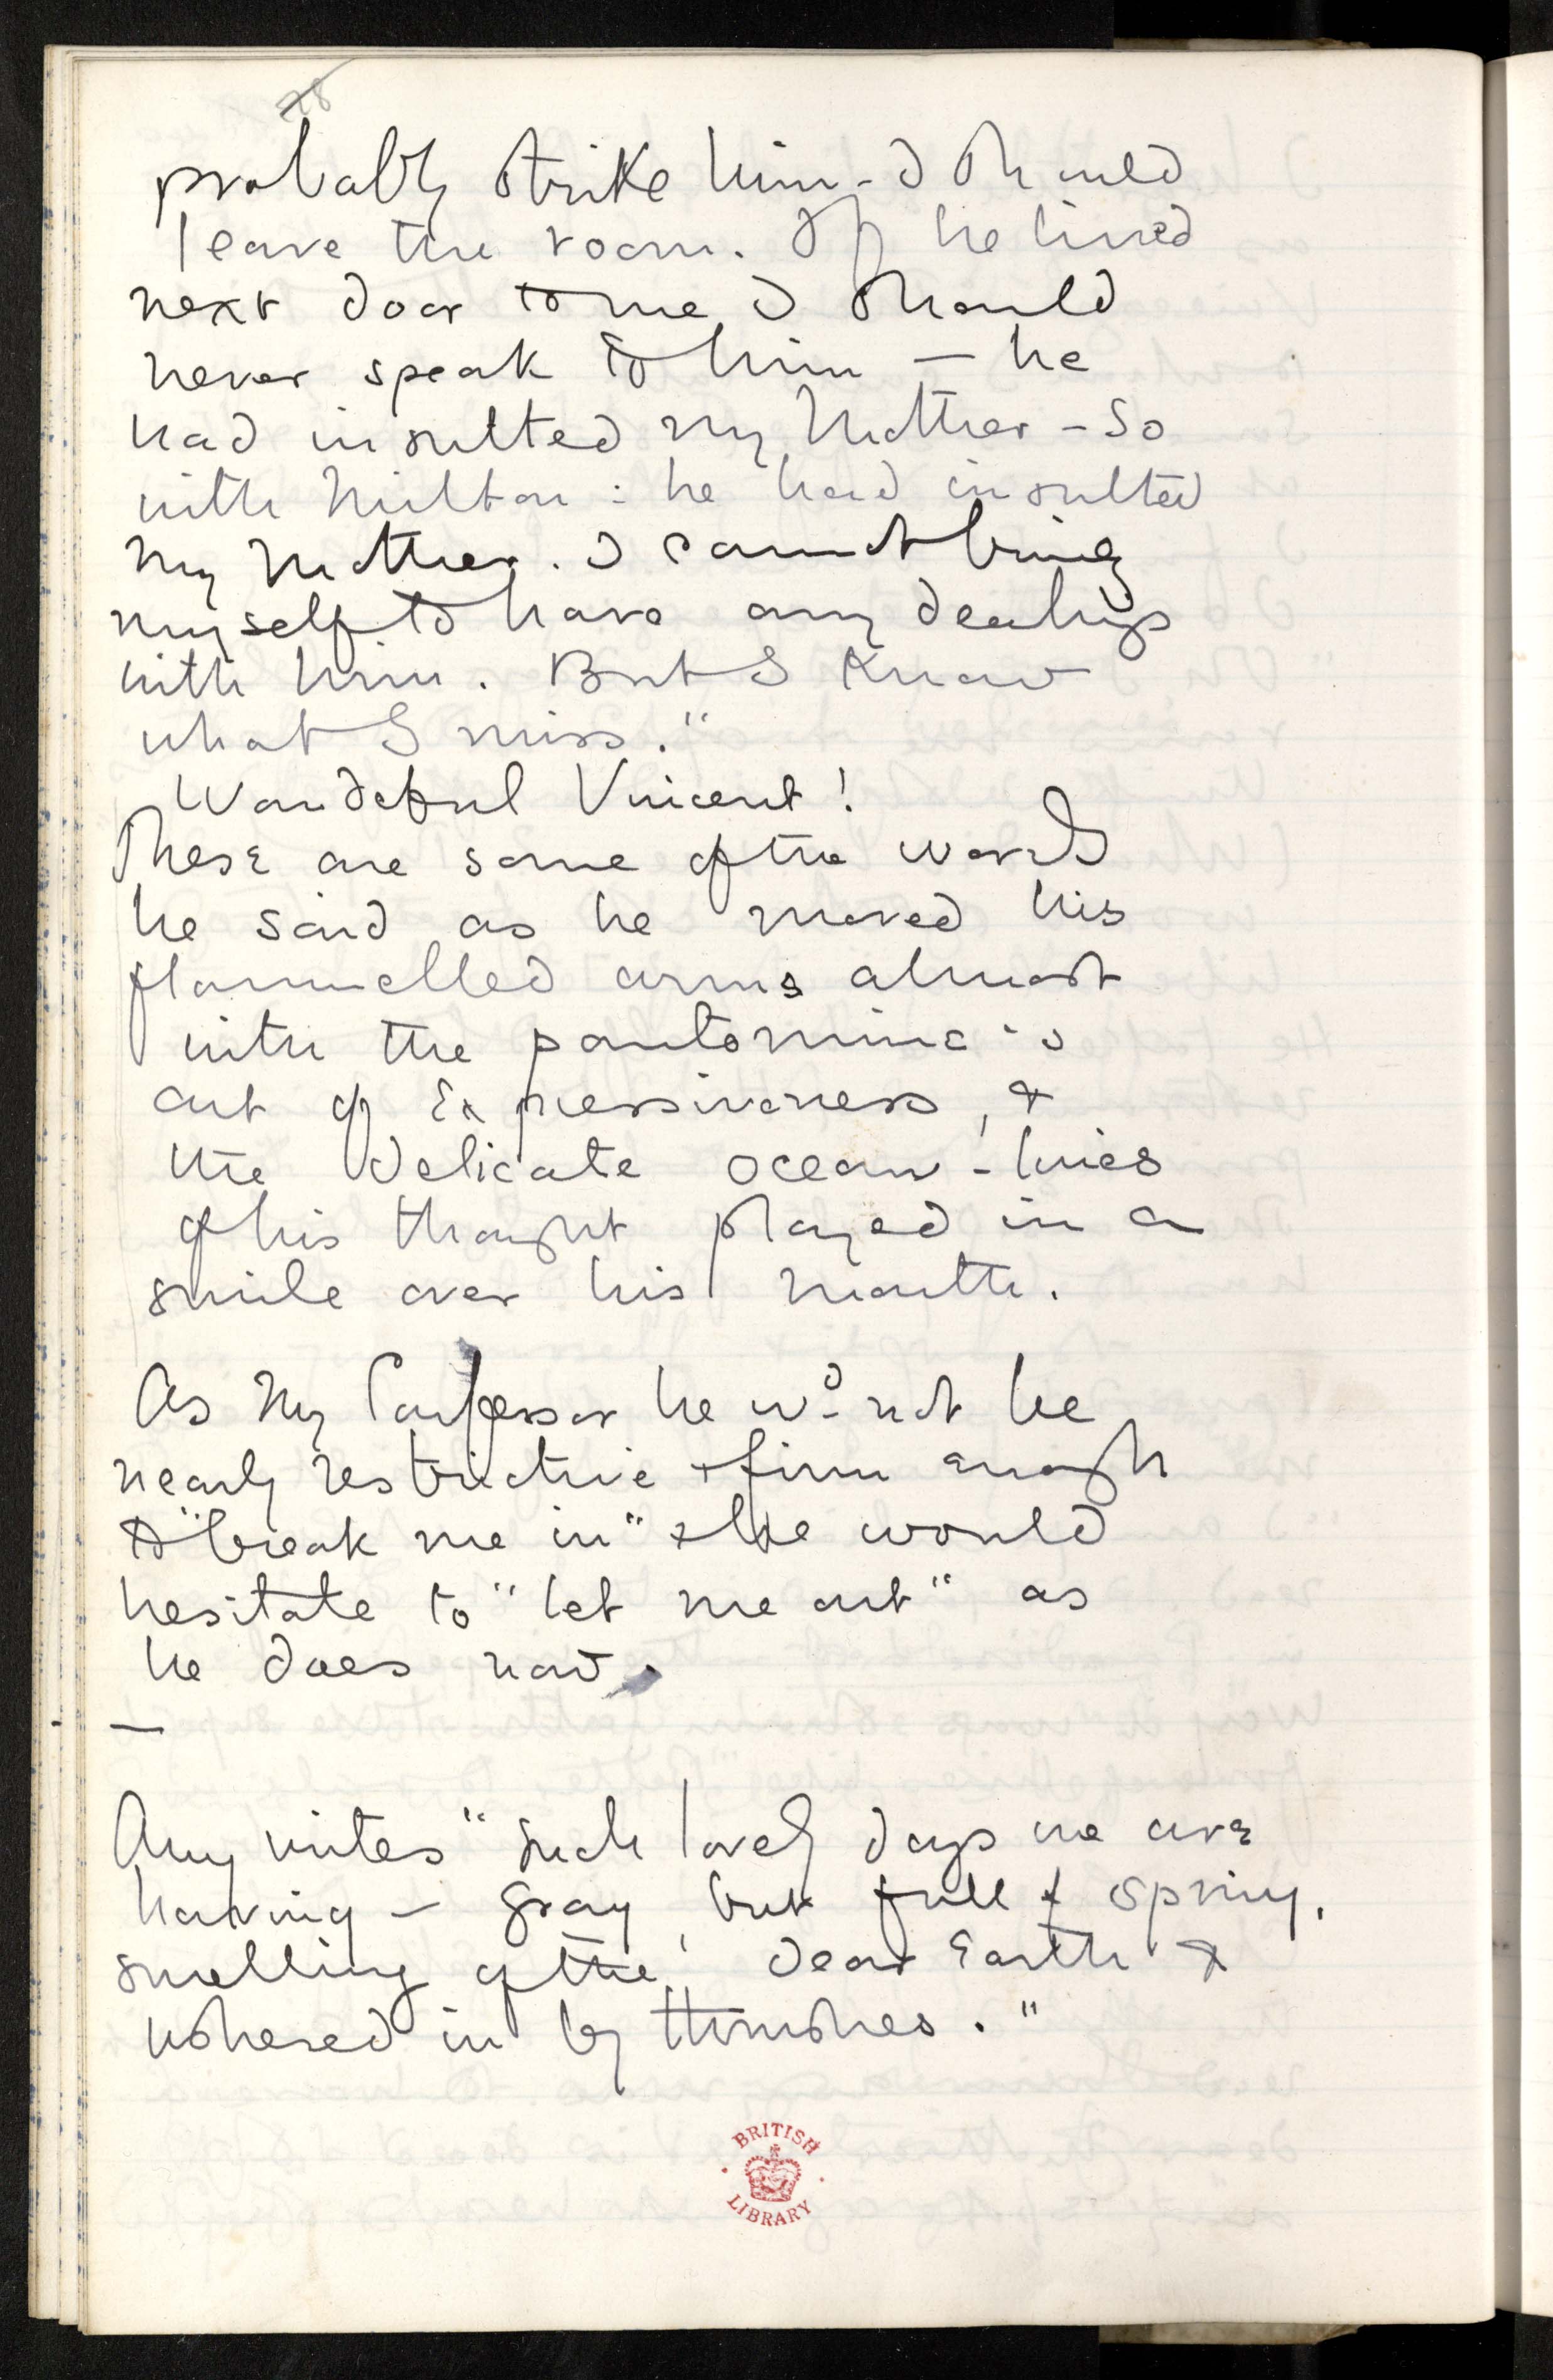 28
probably strike him - I should
leave the room. If he lived
next door to me I should
never speak to him — he
had insulted my Mother - So
with Milton : he had insulted
my Mother. I cannot bring
myself to have any dealings
with him. But I know
what I miss."
Wonderful Vincent!
These are some of the words
he said as he moved his
flannelled arms almost
with the pantomimic
art of Expressiveness, &
the delicate ocean-lines
of his thought played in a
smile over his mouth.
As my Confessor he wd not be
nearly restrictive & firm enough
to "break me in" & he would
hesitate to "let me out" as
he does now.
—
Amy writes "Such lovely days we are
having — gray, but full of spring,
smelling of the dear Earth &
ushered in by thrushes."
BRITISH
LIBRARY